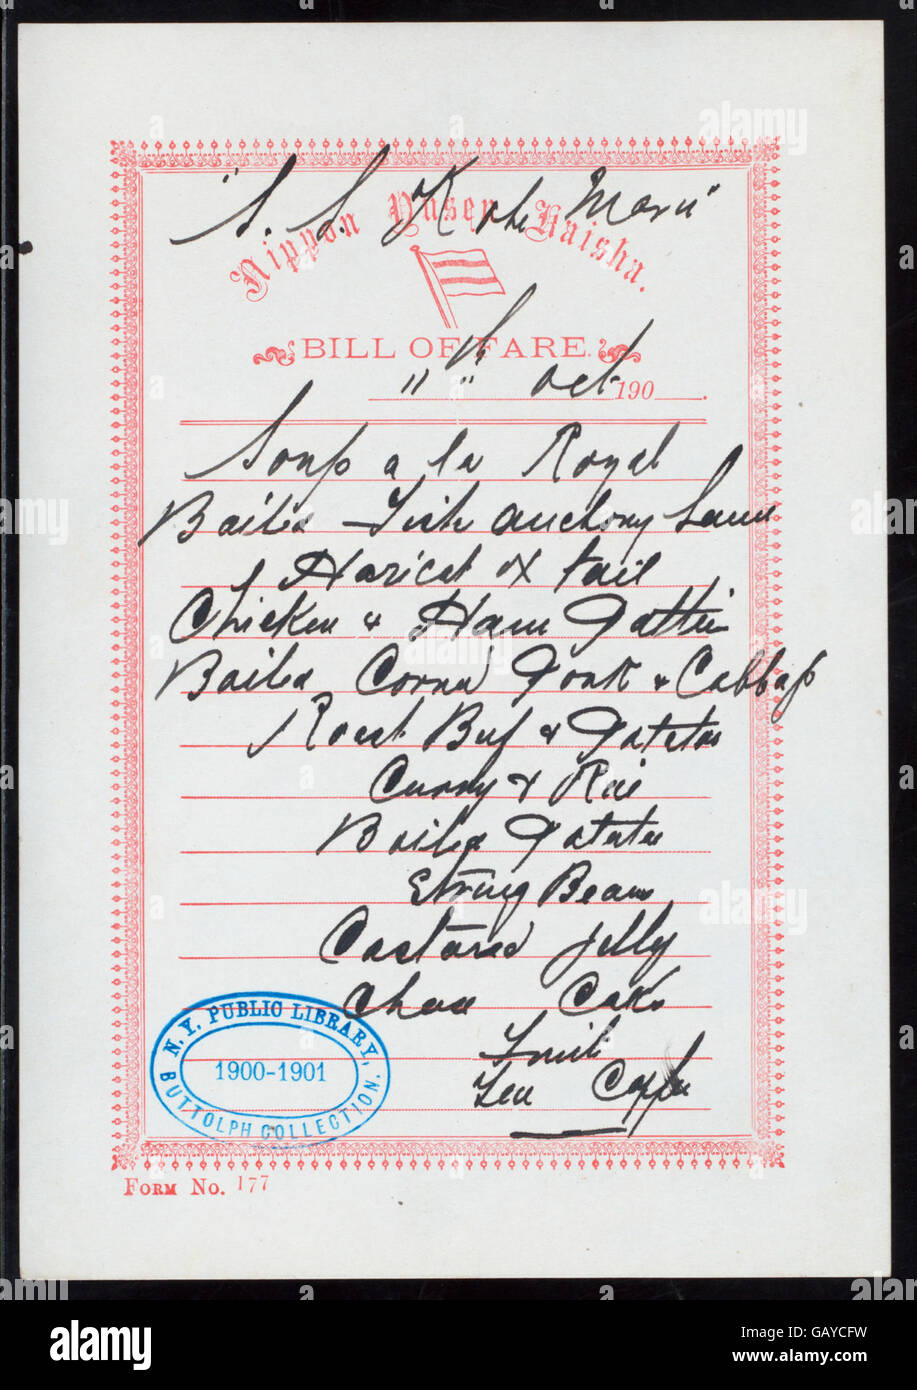 "S. S. Kobe Maru"
Nippon Yusen Kaisha.
BILL OF FARE.
11th Oct 190
Soup a la Royal
Boiled Fish Anchovy Sauce
Haricot Ox Tail
Chicken & Ham Pattie
Boiled Corned Pork & Cabbage
Roast Beef & Potatoes
Curry & Rice
Boiled Potatoes
String Beans
Custared Jelly
Cheese Cake
Fruit
Tea Coffee
N.Y. PUBLIC LIBRARY,
1900-1901
BUTTOLPH COLLECTION.
FORM NO. 177
alamy
Image ID: GAYCFW
www.alamy.com